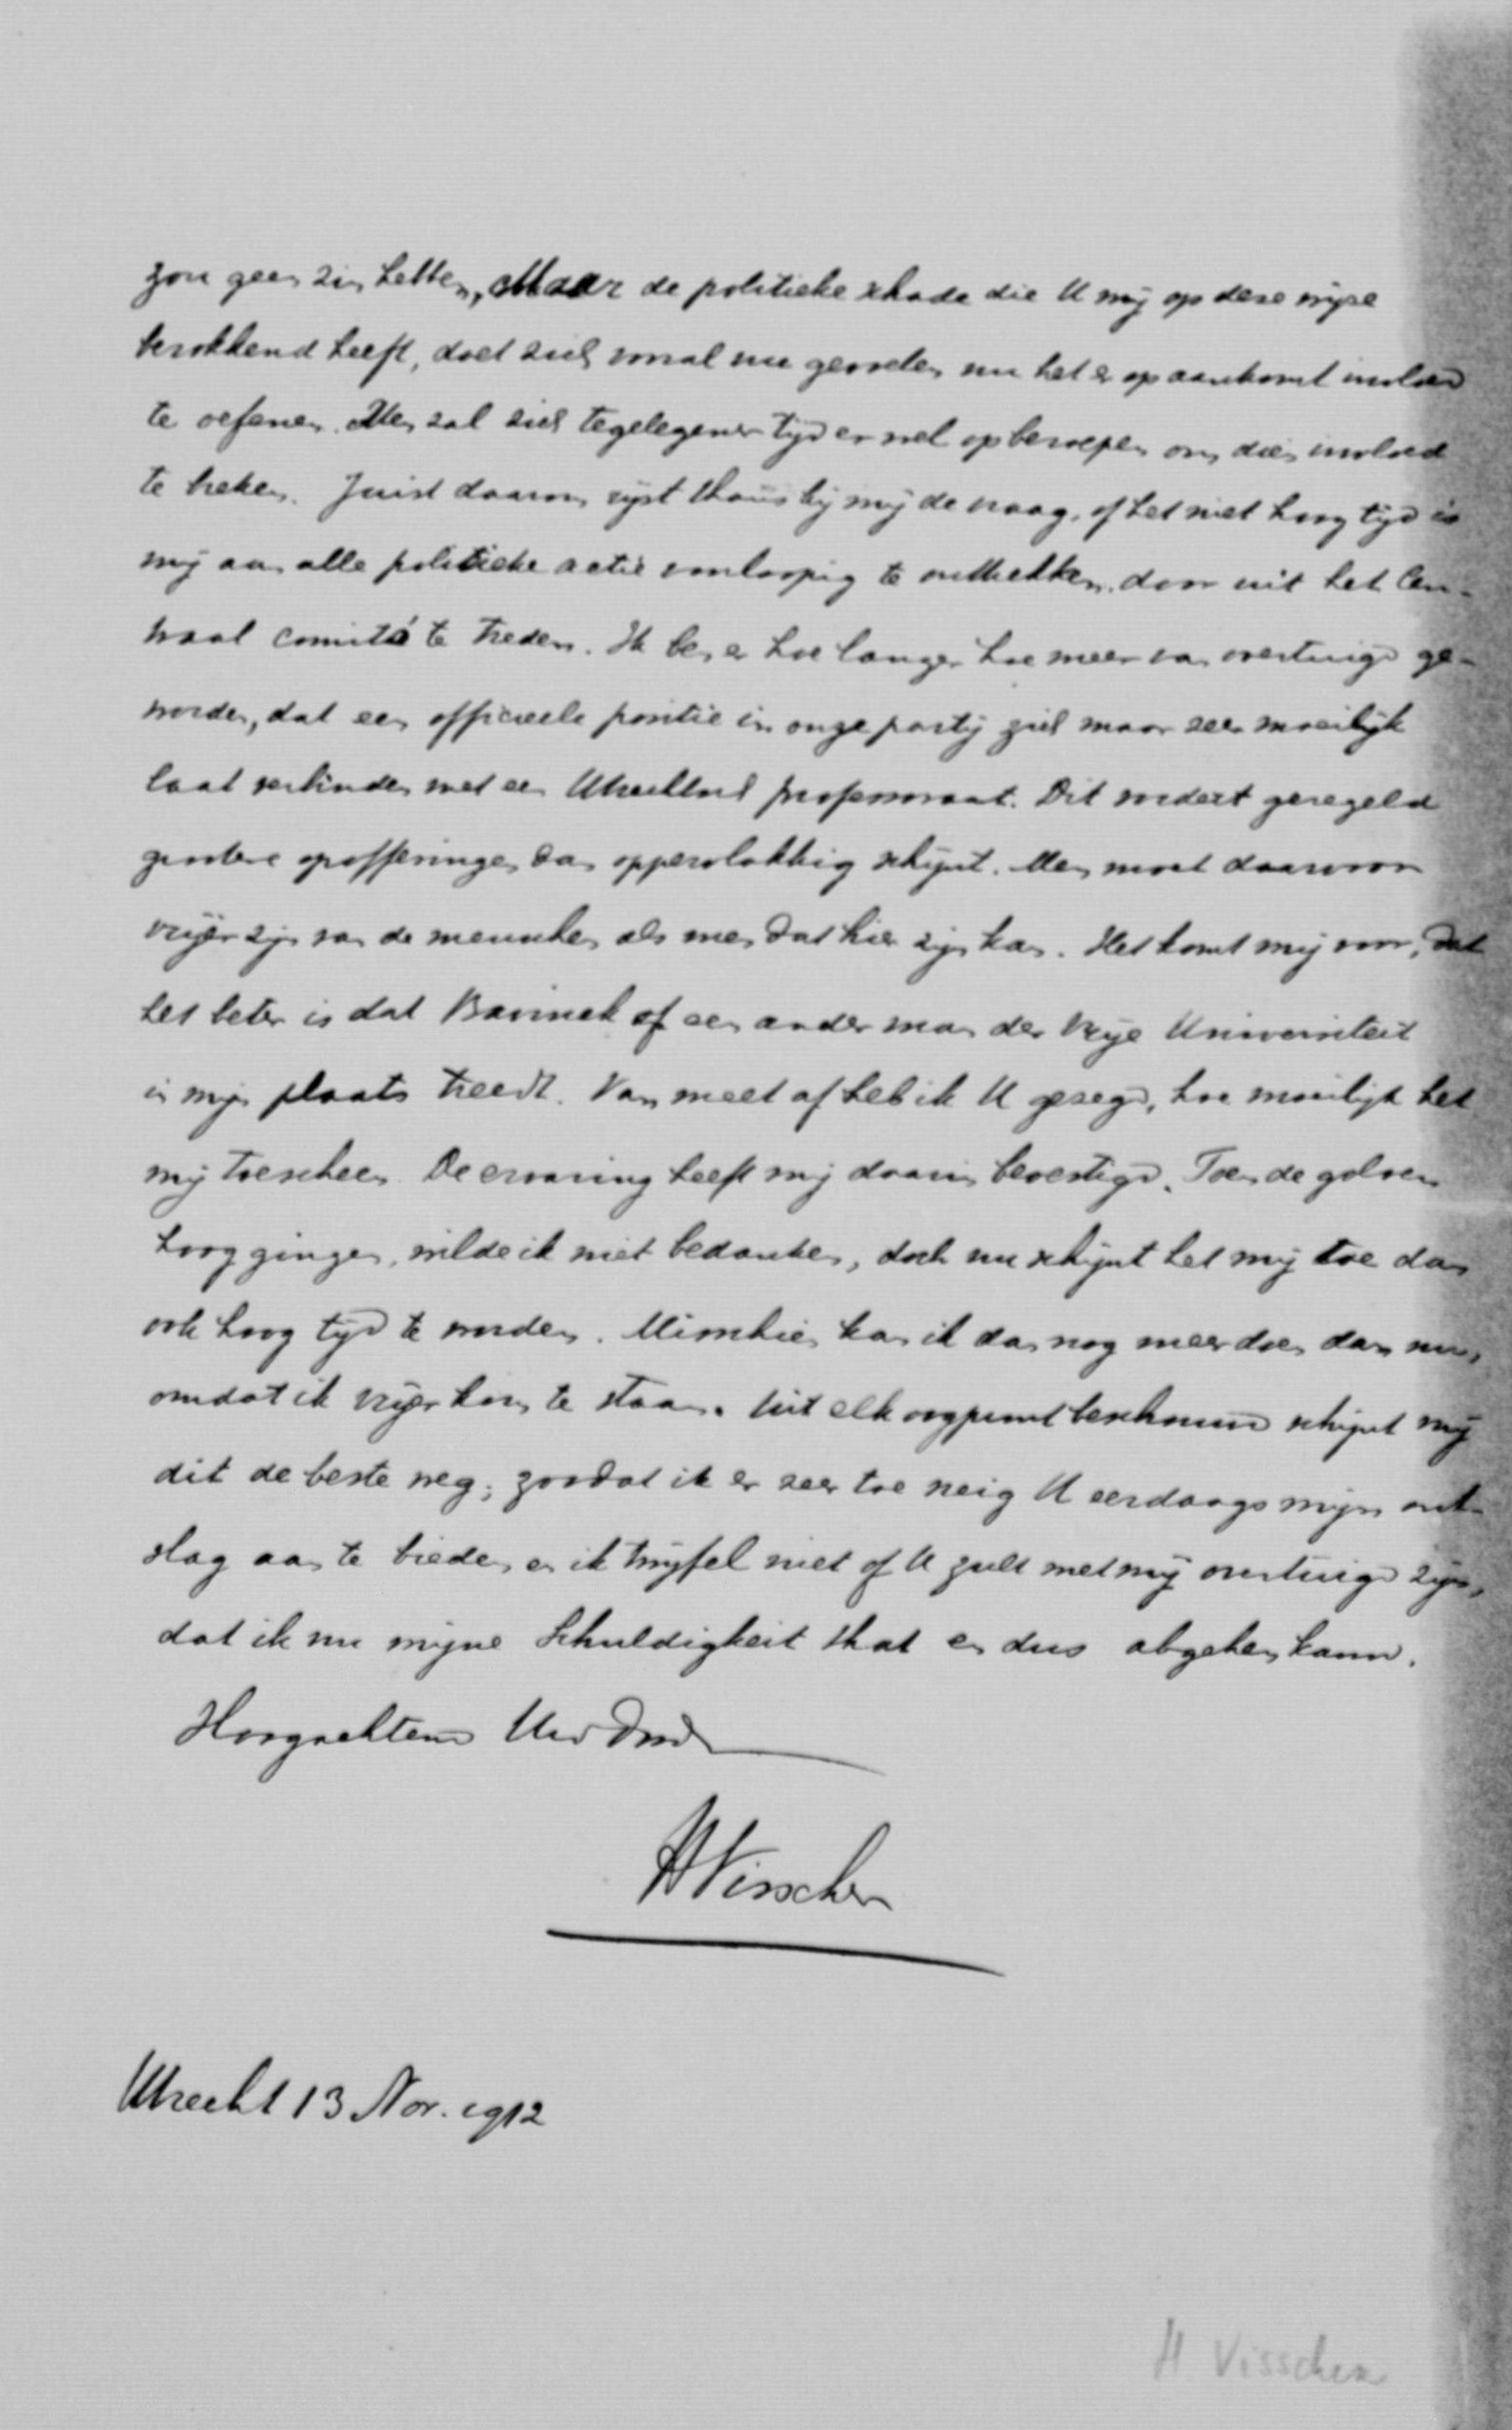 zou geen zin hebben, Maar de politieke schade die U mij op deze wijze
berokkend heeft, doet zich vooral nu gevoelen nu het er op aankomt invloed
te oefenen. Men zal zich tegelegener tijd er wel op beroepen om dien invloed
te breken. Juist daarom rijst thans bij mij de vraag, of het niet hoog tijd is
mij aan alle politieke actie voorloopig te onttrekken, door uit het Cen-
traal comité te treden. Ik ben er hoe langer hoe meer van overtuigd ge-
worden, dat een officieele positie in onze partij zich maar zeer moeilijk
laat verbinden met een Utrechtsch professoraat. Dit vordert geregeld
grootere opofferingen dan oppervlakkig schijnt. Men moet daarvoor
vrijer zijn van de menschen als men dat hier zijn kan. Het komt mij voor, dat
het beter is dat Bavinck of een ander man der Vrije Universiteit
in mijn plaats treedt. Van meet af heb ik U gezegd, hoe moeilijk het
mij toescheen. De ervaring heeft mij daarin bevestigd. Toen de golven
hoog gingen, wilde ik niet bedanken, doch nu schijnt het mij toe dan
ook hoog tijd te worden. Misschien kan ik dan nog meer doen dan nu,
omdat ik vrijer kom te staan. Uit elk oogpunt beschouwd schijnt mij
dit de beste weg; zoodat ik er zeer toe neig U eerdaags mijn ont-
slag aan te bieden en ik twijfel niet of U zult met mij overtuigd zijn,
dat ik nu mijne Schuldigkeit that en dus abgehen kann.
Hoogachtend Uw Dnr
HVisscher
Utrecht 13 Nov. 1912
H. Visscher